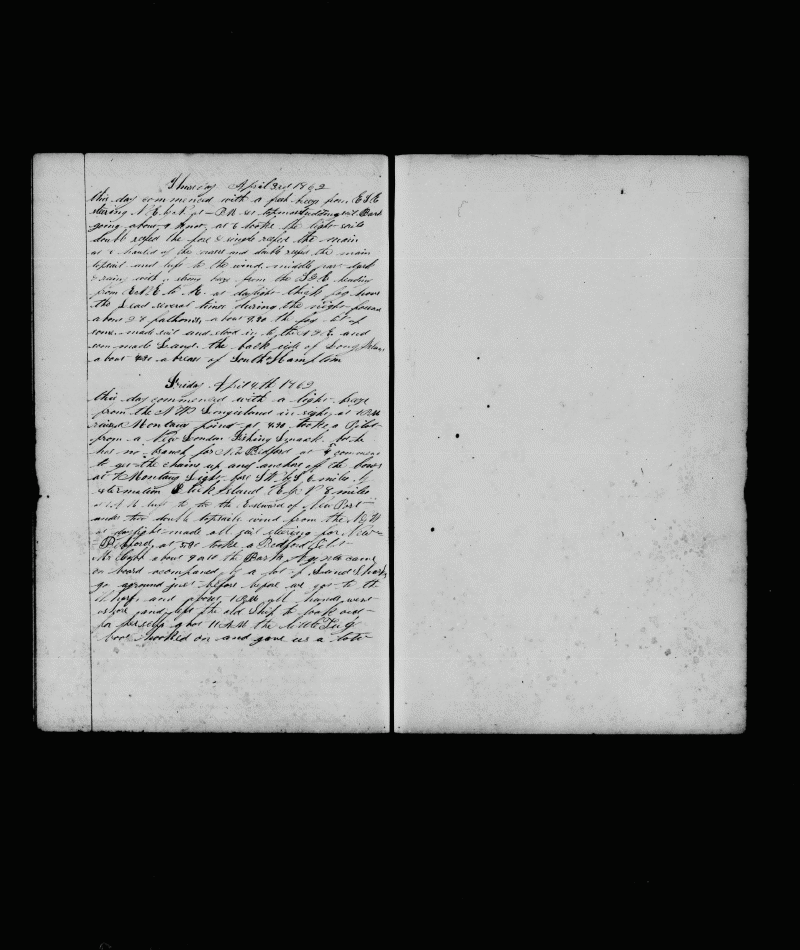 Thursday April 3rd 1862
this day commenced with a fresh breeze from ESE
stering N.E. at P.M. set topmast studdingsail Bark
going about 9 knots at 6 tooke the light sails
doubl reefed the fore & single reefed the main
at hauled up the corses and doubl reefed the main
topsail and luft to the wind middle part dark
& rainy with strong breze from the SSE heading
from ENE to E. at daylight thick fog hove
the Lead several times during the night found
about 28 fathoms about 9.30 the fog lit up
some made sail and stood in to the N.E. and
soon made Land the back side of Long Island
about abreast of South Hampton
Friday April 4th 1862
this day commenced with a light breze
from the NW Longisland in sight at 1 P.M.
raised Montauk point at 4.30 tooke a Pilot
from a New London Fishing Smack but he
has no branch for New Bedford at 4 commenced
to get the chains up and anchors off the bows
at 7 Montaug Light bore SW by S 6 miles by
estermation Block Island E by N 8 miles
at luft to to the Eastward of New Port
under two doubl topsails wind from the NW
at daylight made all sail stering for New
Bedford, at 8.30 tooke a Bedford Pilot
Mr about 9 all the Barks Agents came
on board acompaned by a lot of Land Sharks
go aground just before we got to the
wharf and about 1 P.M. all hands went
ashore and left the old Ship to look out
for herself about 11 A.M. the little Tug
boat hooked on and gave us a tote